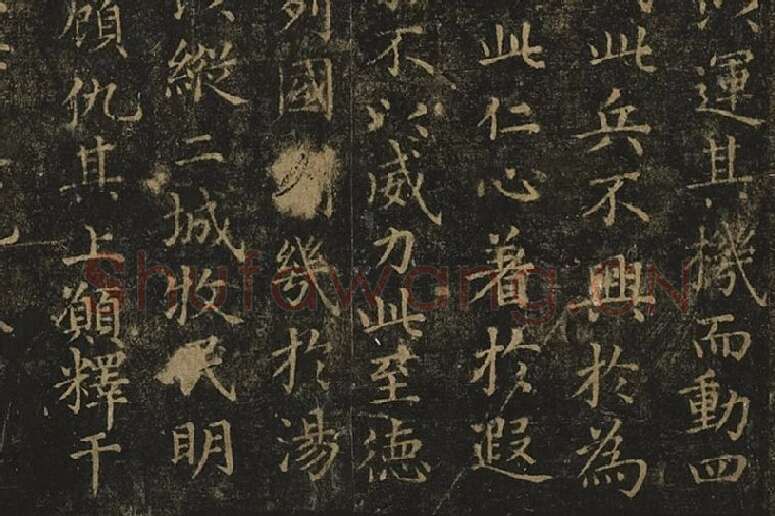 運其機而動四
此兵不興於為
此仁心著於遐
不以威力此至德
列國幾於湯
縱二城牧民明
顧仇其上願釋干
Shufawang.CN